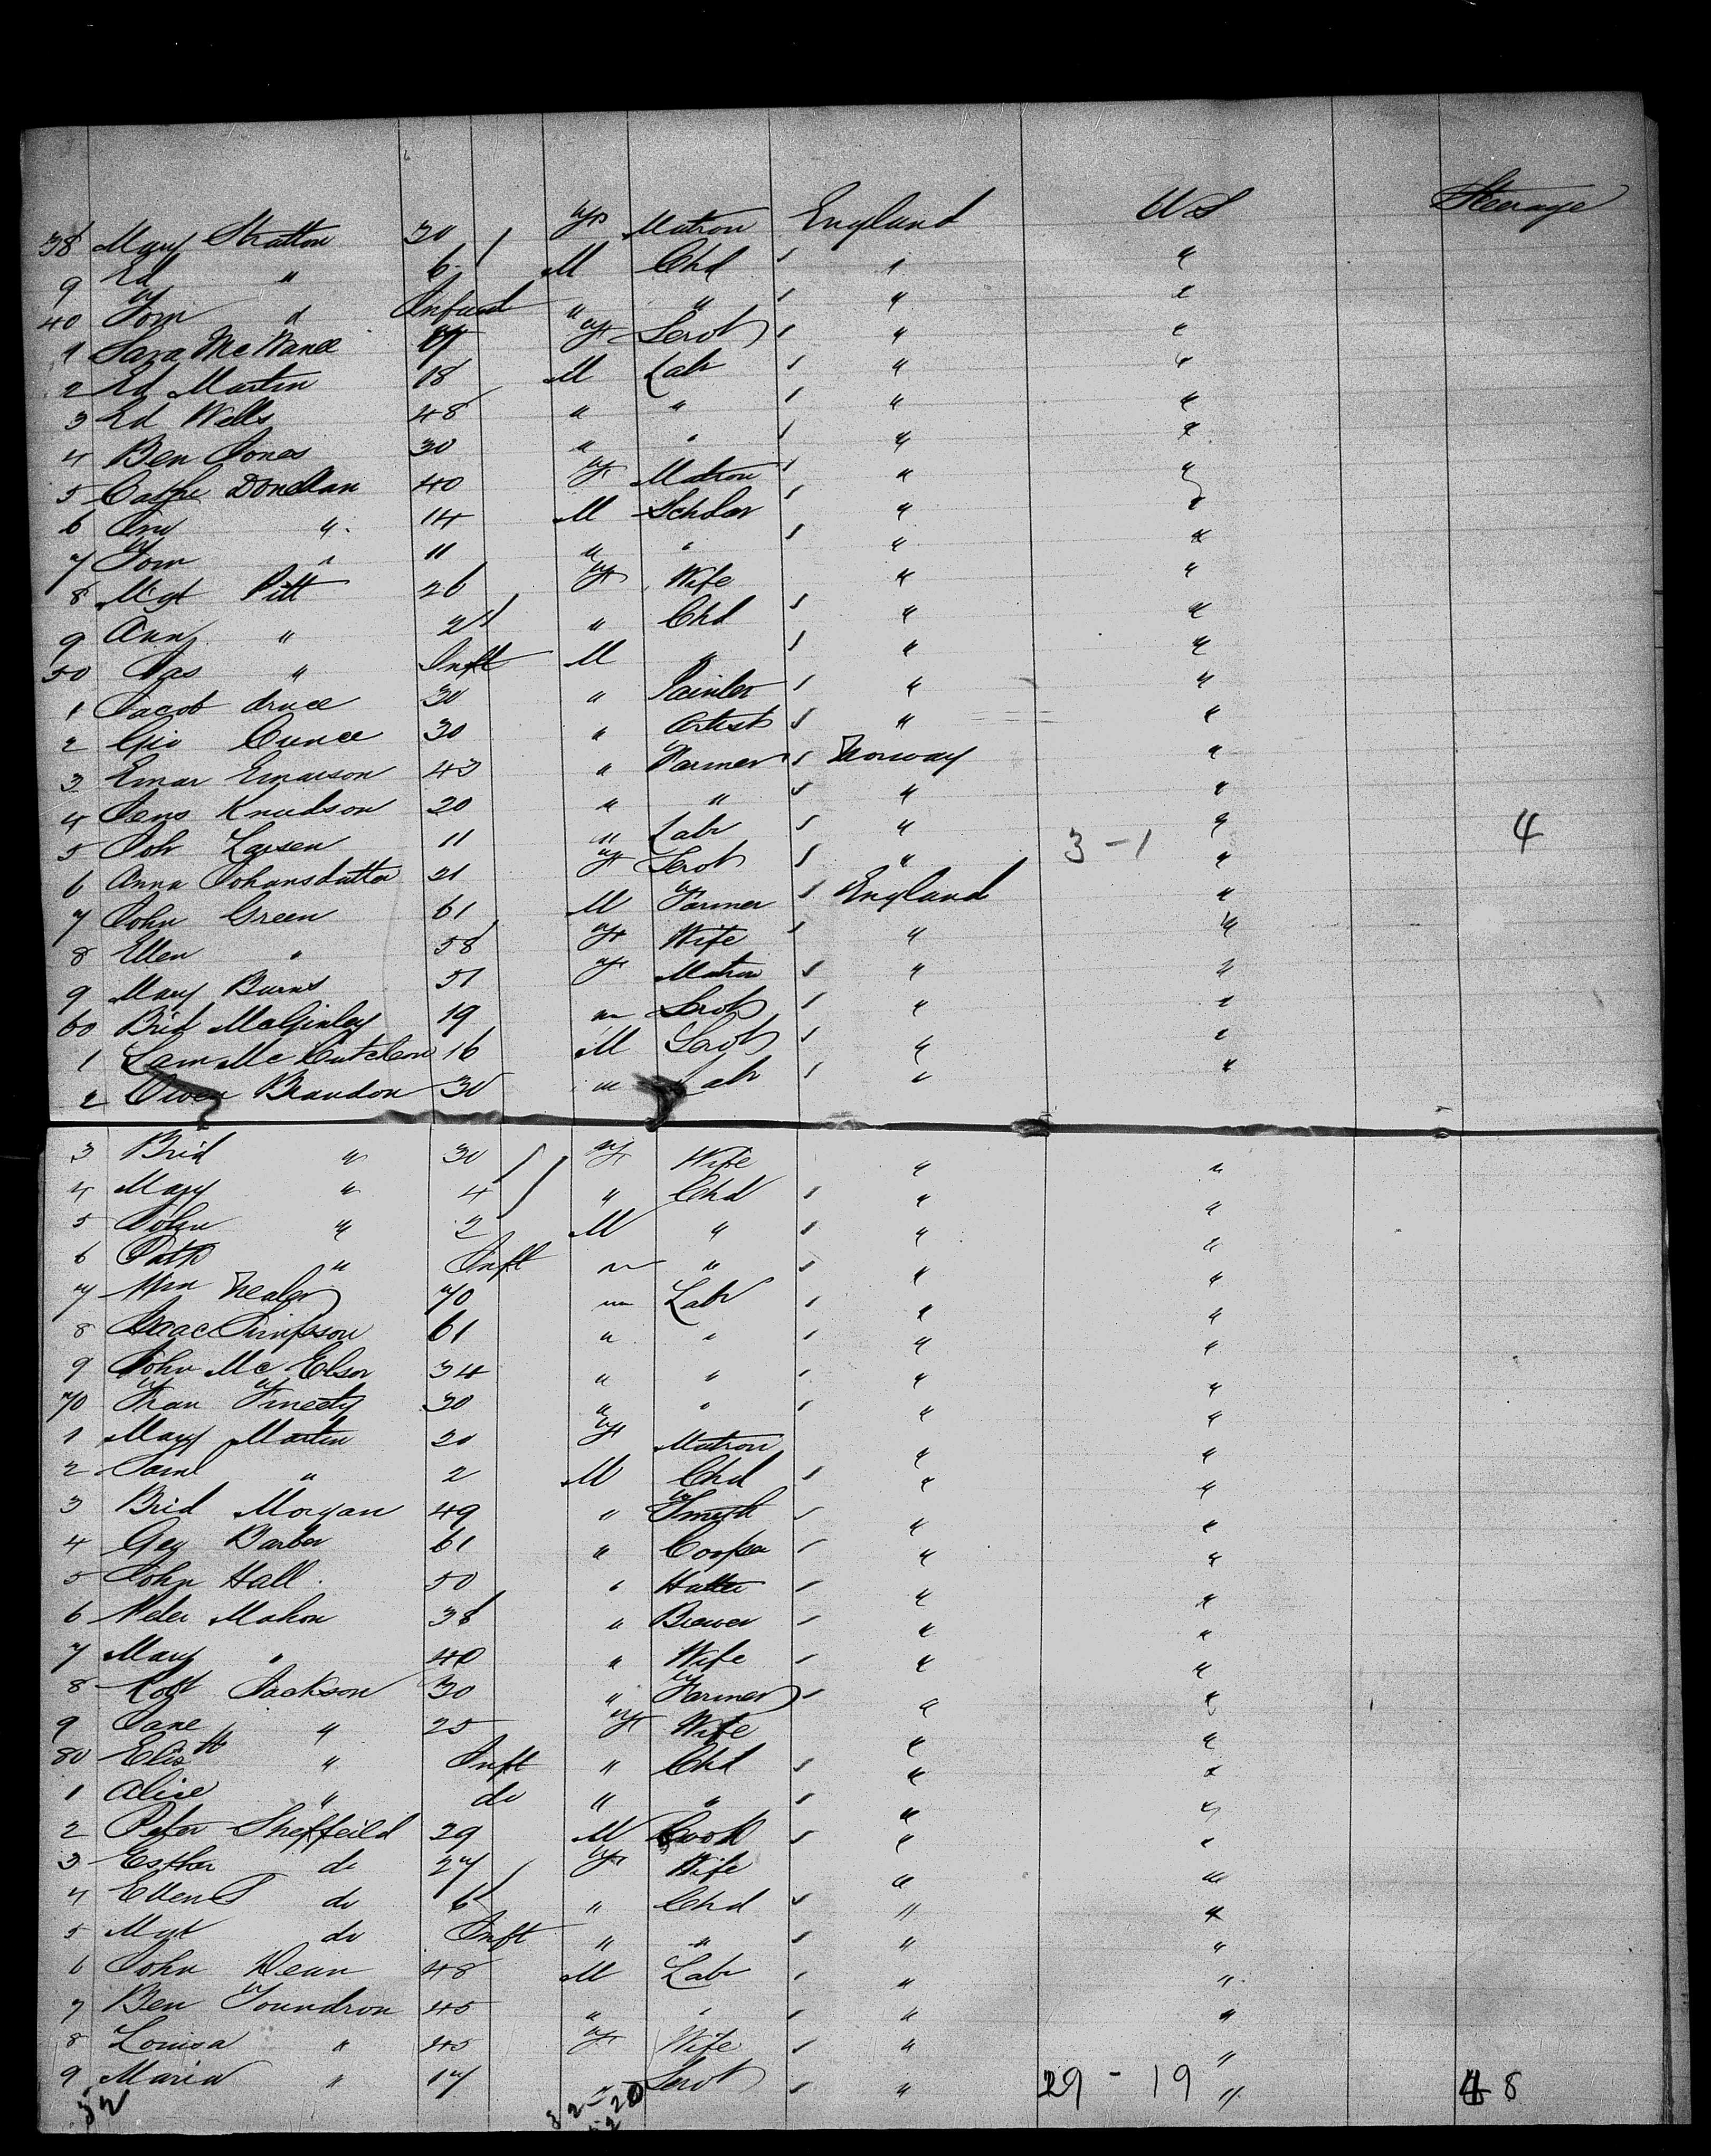 38 Mary Stratton 30 f Matron England U S Steerage
9 Ed " 6 M Chd " "
40 Tom " Infant " " " "
1 Sara 19 f Servt " "
2 Ed Martin 18 M Labr " "
3 Ed Wells 48 " " " "
4 Ben Jones 30 " " " "
5 Cathe Donellan 40 f Matron " "
6 " 14 M Scholar " "
7 Tom " 11 " " " "
8 Mgt Pitt 26 f Wife " "
9 Ann " 2 " Chd " "
50 Jas " Inft M " " "
1 Jacob druce 30 " Painter " "
2 Geo Cunce 30 " Artist " "
3 Emar Emarson 43 " Farmer Norway "
4 Jens Knudson 20 " " " "
5 Joh Larsen 11 " Labr " 3-1 " 4
6 Anna Johansdatter 21 f Servt " "
7 John Green 61 M Farmer England "
8 Ellen " 58 f Wife " "
9 Mary Burns 51 f Matron " "
60 Brid McGinley 19 " Servt " "
1 Sam Mc Cutcleon 16 M Servt " "
2 Owen Brandon 30 " Labr " "
3 Brid " 30 f Wife " "
4 Mary " 4 " Chd " "
5 John " 2 M " " "
6 Patk " Inft " " " "
7 Wm Nealey 70 " Labr " "
8 Isaac Simpson 61 " " " "
9 John Mc Elson 34 " " " "
70 Fran Finecty 30 " " " "
1 Mary Martin 20 f Matron " "
2 Saml " 2 M Chd " "
3 Brid Morgan 49 " Smyth " "
4 Geo Barber 61 " Cooper " "
5 John Hall 50 " Hatter " "
6 Peter Mahon 38 " Brewer " "
7 Mary " 40 " Wife " "
8 Robt Jackson 30 " Farmer " "
9 Jane " 25 f Wife " "
80 Elizth " Inft " Chd " "
1 Alice " do " " " "
2 Peter Sheffeild 29 M Cook " "
3 Esther do 27 f Wife " "
4 Ellen do 6 " Chd " "
5 Mgt do Inft " " " "
6 John Dean 48 M Labr " "
7 Ben Foundron 45 " " " "
8 Louisa " 45 f Wife " "
9 Maria " 17 " Servt " 29 - 19 " 48
52 32-20
52